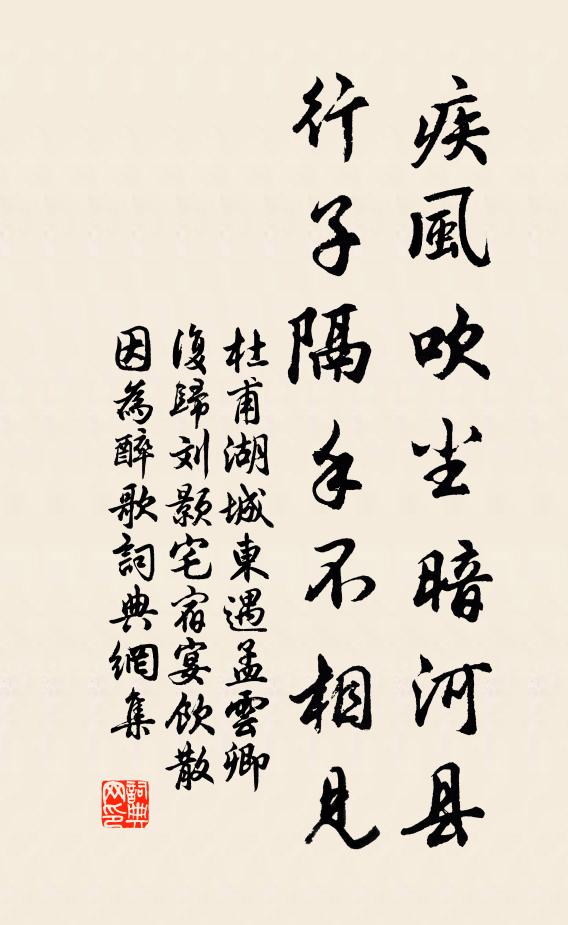 疾風吹尘暗河县
行子隔手不相见
杜甫湖城東遇孟雲卿
復歸刘颢宅宿宴飲散
因為醉歌詞典網集
詞典网印